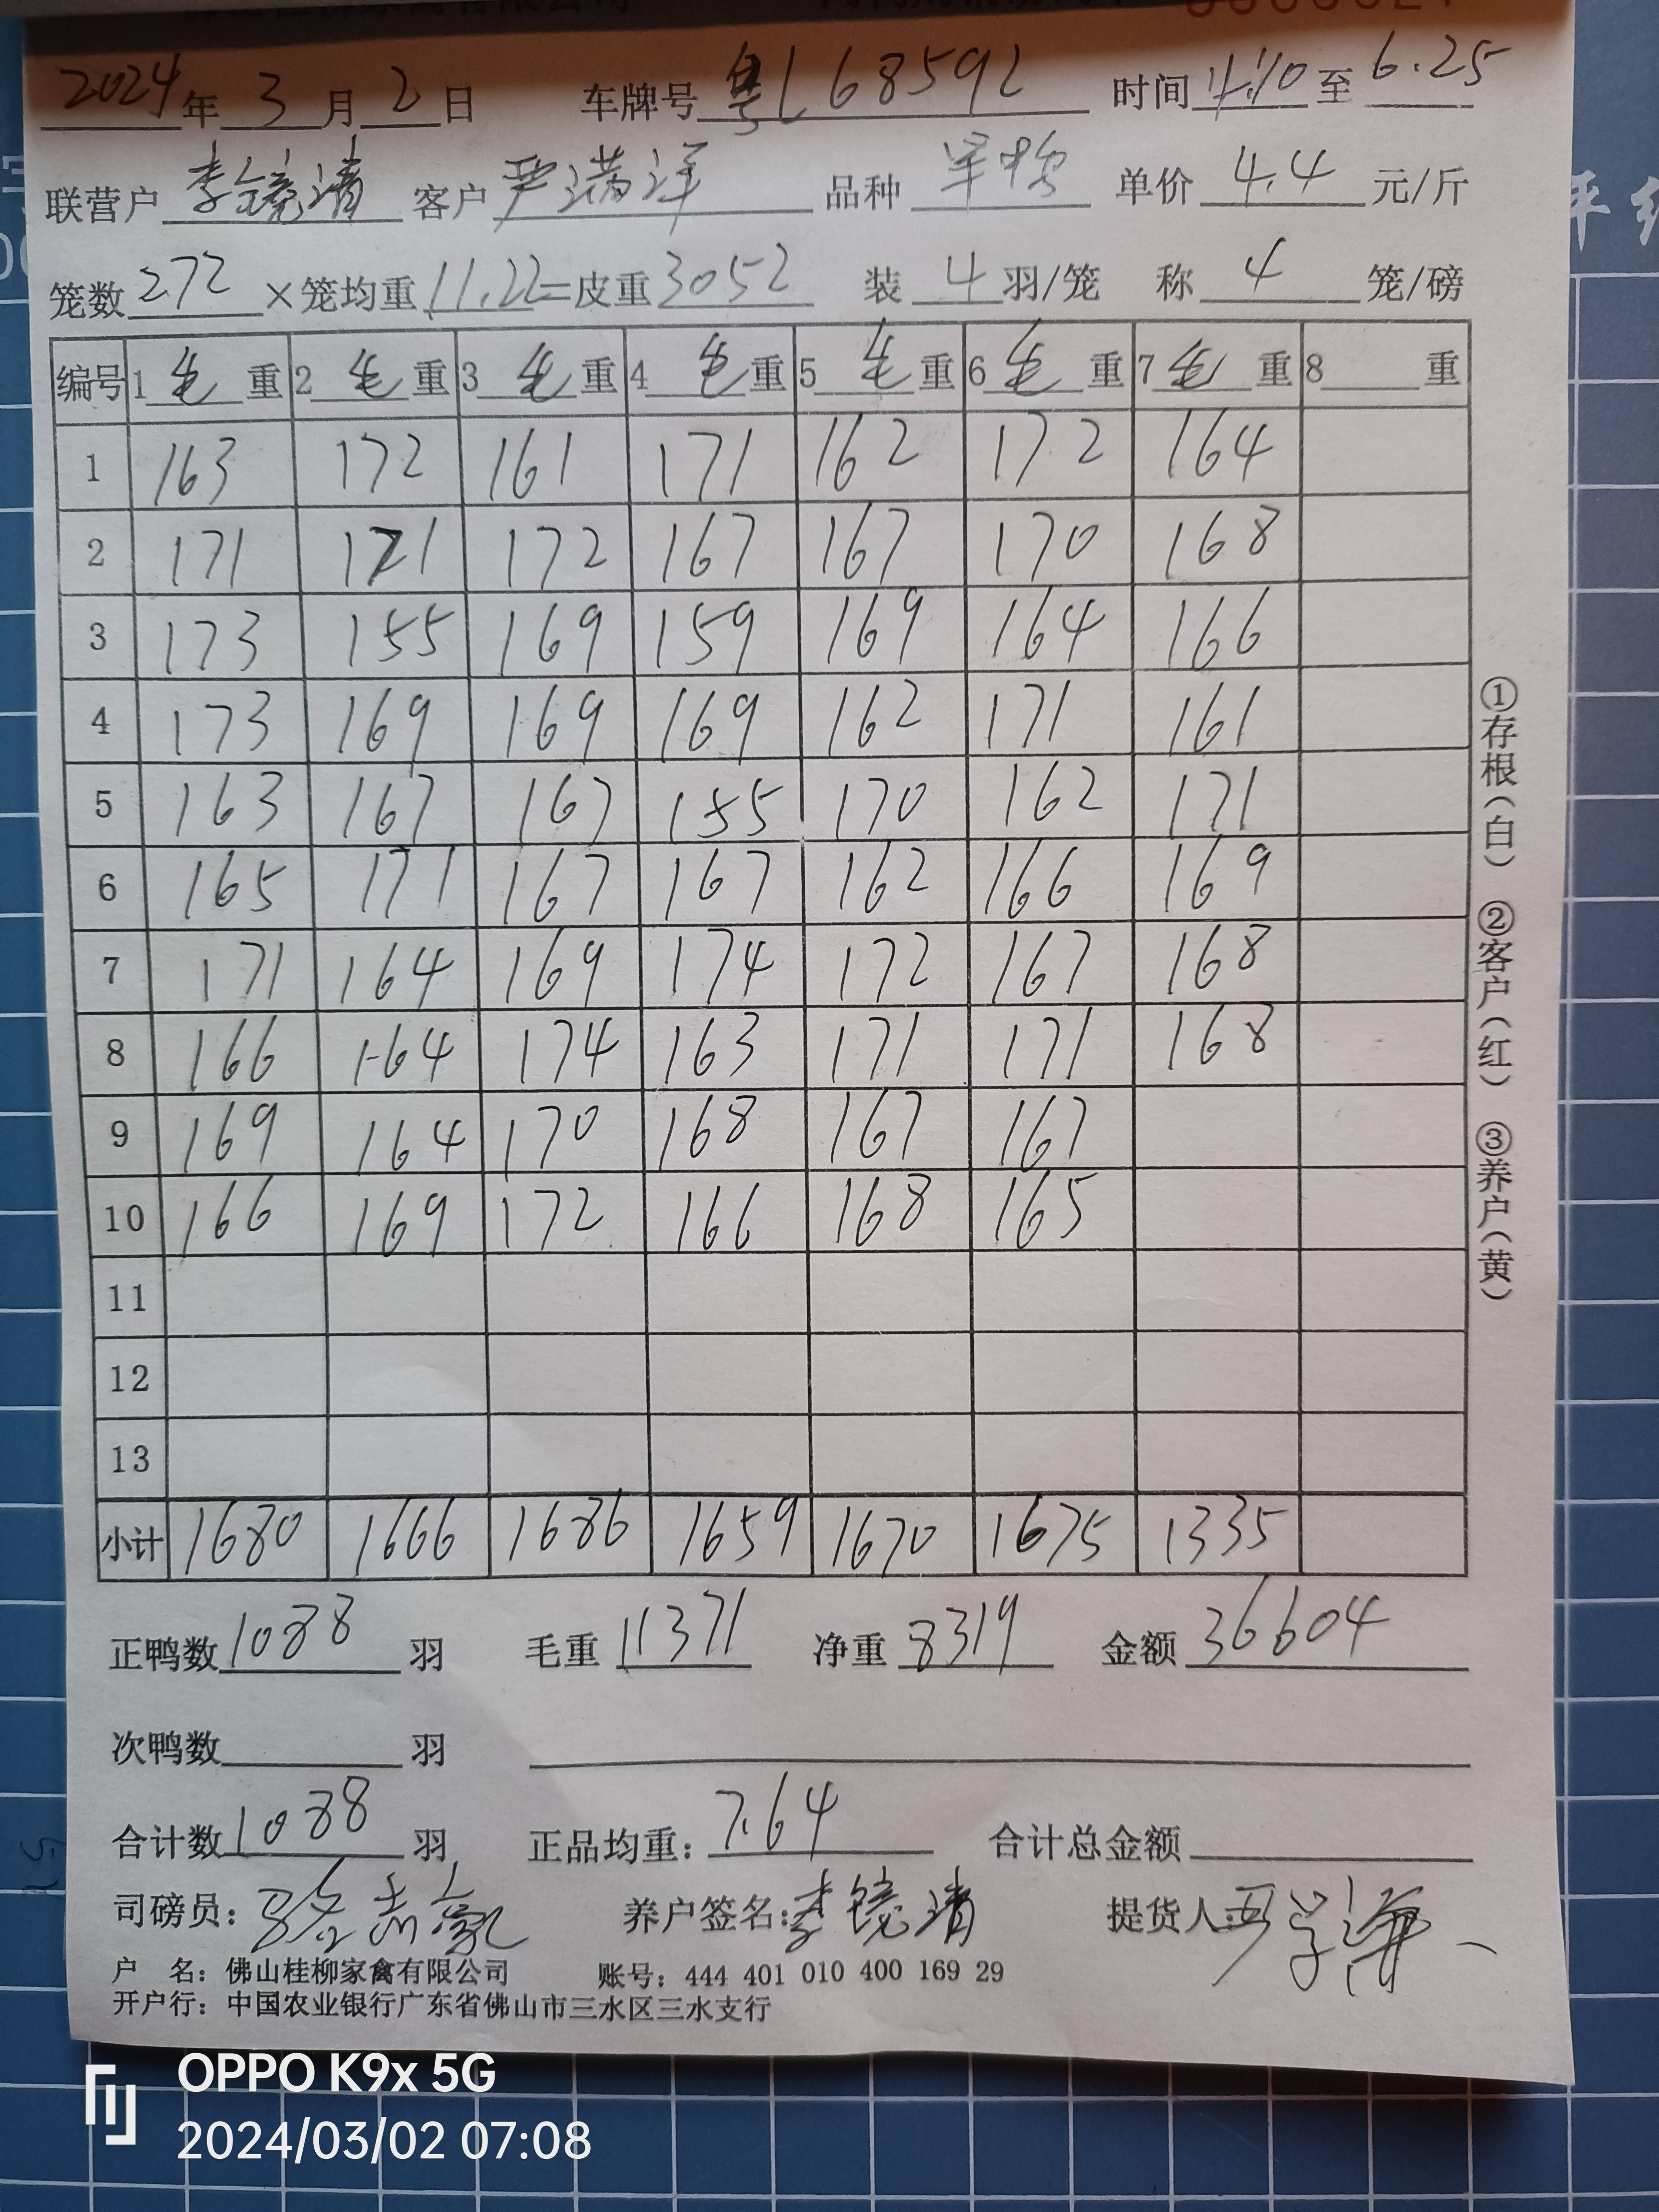 2024年3月2日 车牌号 粤L68592 时间 4.10 至 6.25
联营户 李镜清 客户 严满洋 品种 单价 4.4 元/斤
笼数 272 ×笼均重 11.22=皮重 3052 装 4 羽/笼 称 4 笼/磅
编号 1毛重 2毛重 3毛重 4毛重 5毛重 6毛重 7毛重 8 重
1 163 172 161 171 162 172 164
2 171 171 172 167 167 170 168
3 173 155 169 159 169 164 166
4 173 169 169 169 162 171 161
5 163 167 167 155 170 162 171
6 165 171 167 167 162 166 169
7 171 164 169 174 172 167 168
8 166 164 174 163 171 171 168
9 169 164 170 168 167 167
10 166 169 172 166 168 165
11
12
13
小计 1680 1666 1686 1659 1670 1675 1335
①存根(白) ②客户(红) ③养户(黄)
正鸭数 1088 羽 毛重 11371 净重 8319 金额 36604
次鸭数 羽
合计数 1088 羽 正品均重: 7.64 合计总金额
司磅员: 养户签名: 李镜清 提货人:
户 名: 佛山桂柳家禽有限公司 账号: 444 401 010 400 169 29
开户行: 中国农业银行广东省佛山市三水区三水支行
OPPO K9x 5G
2024/03/02 07:08